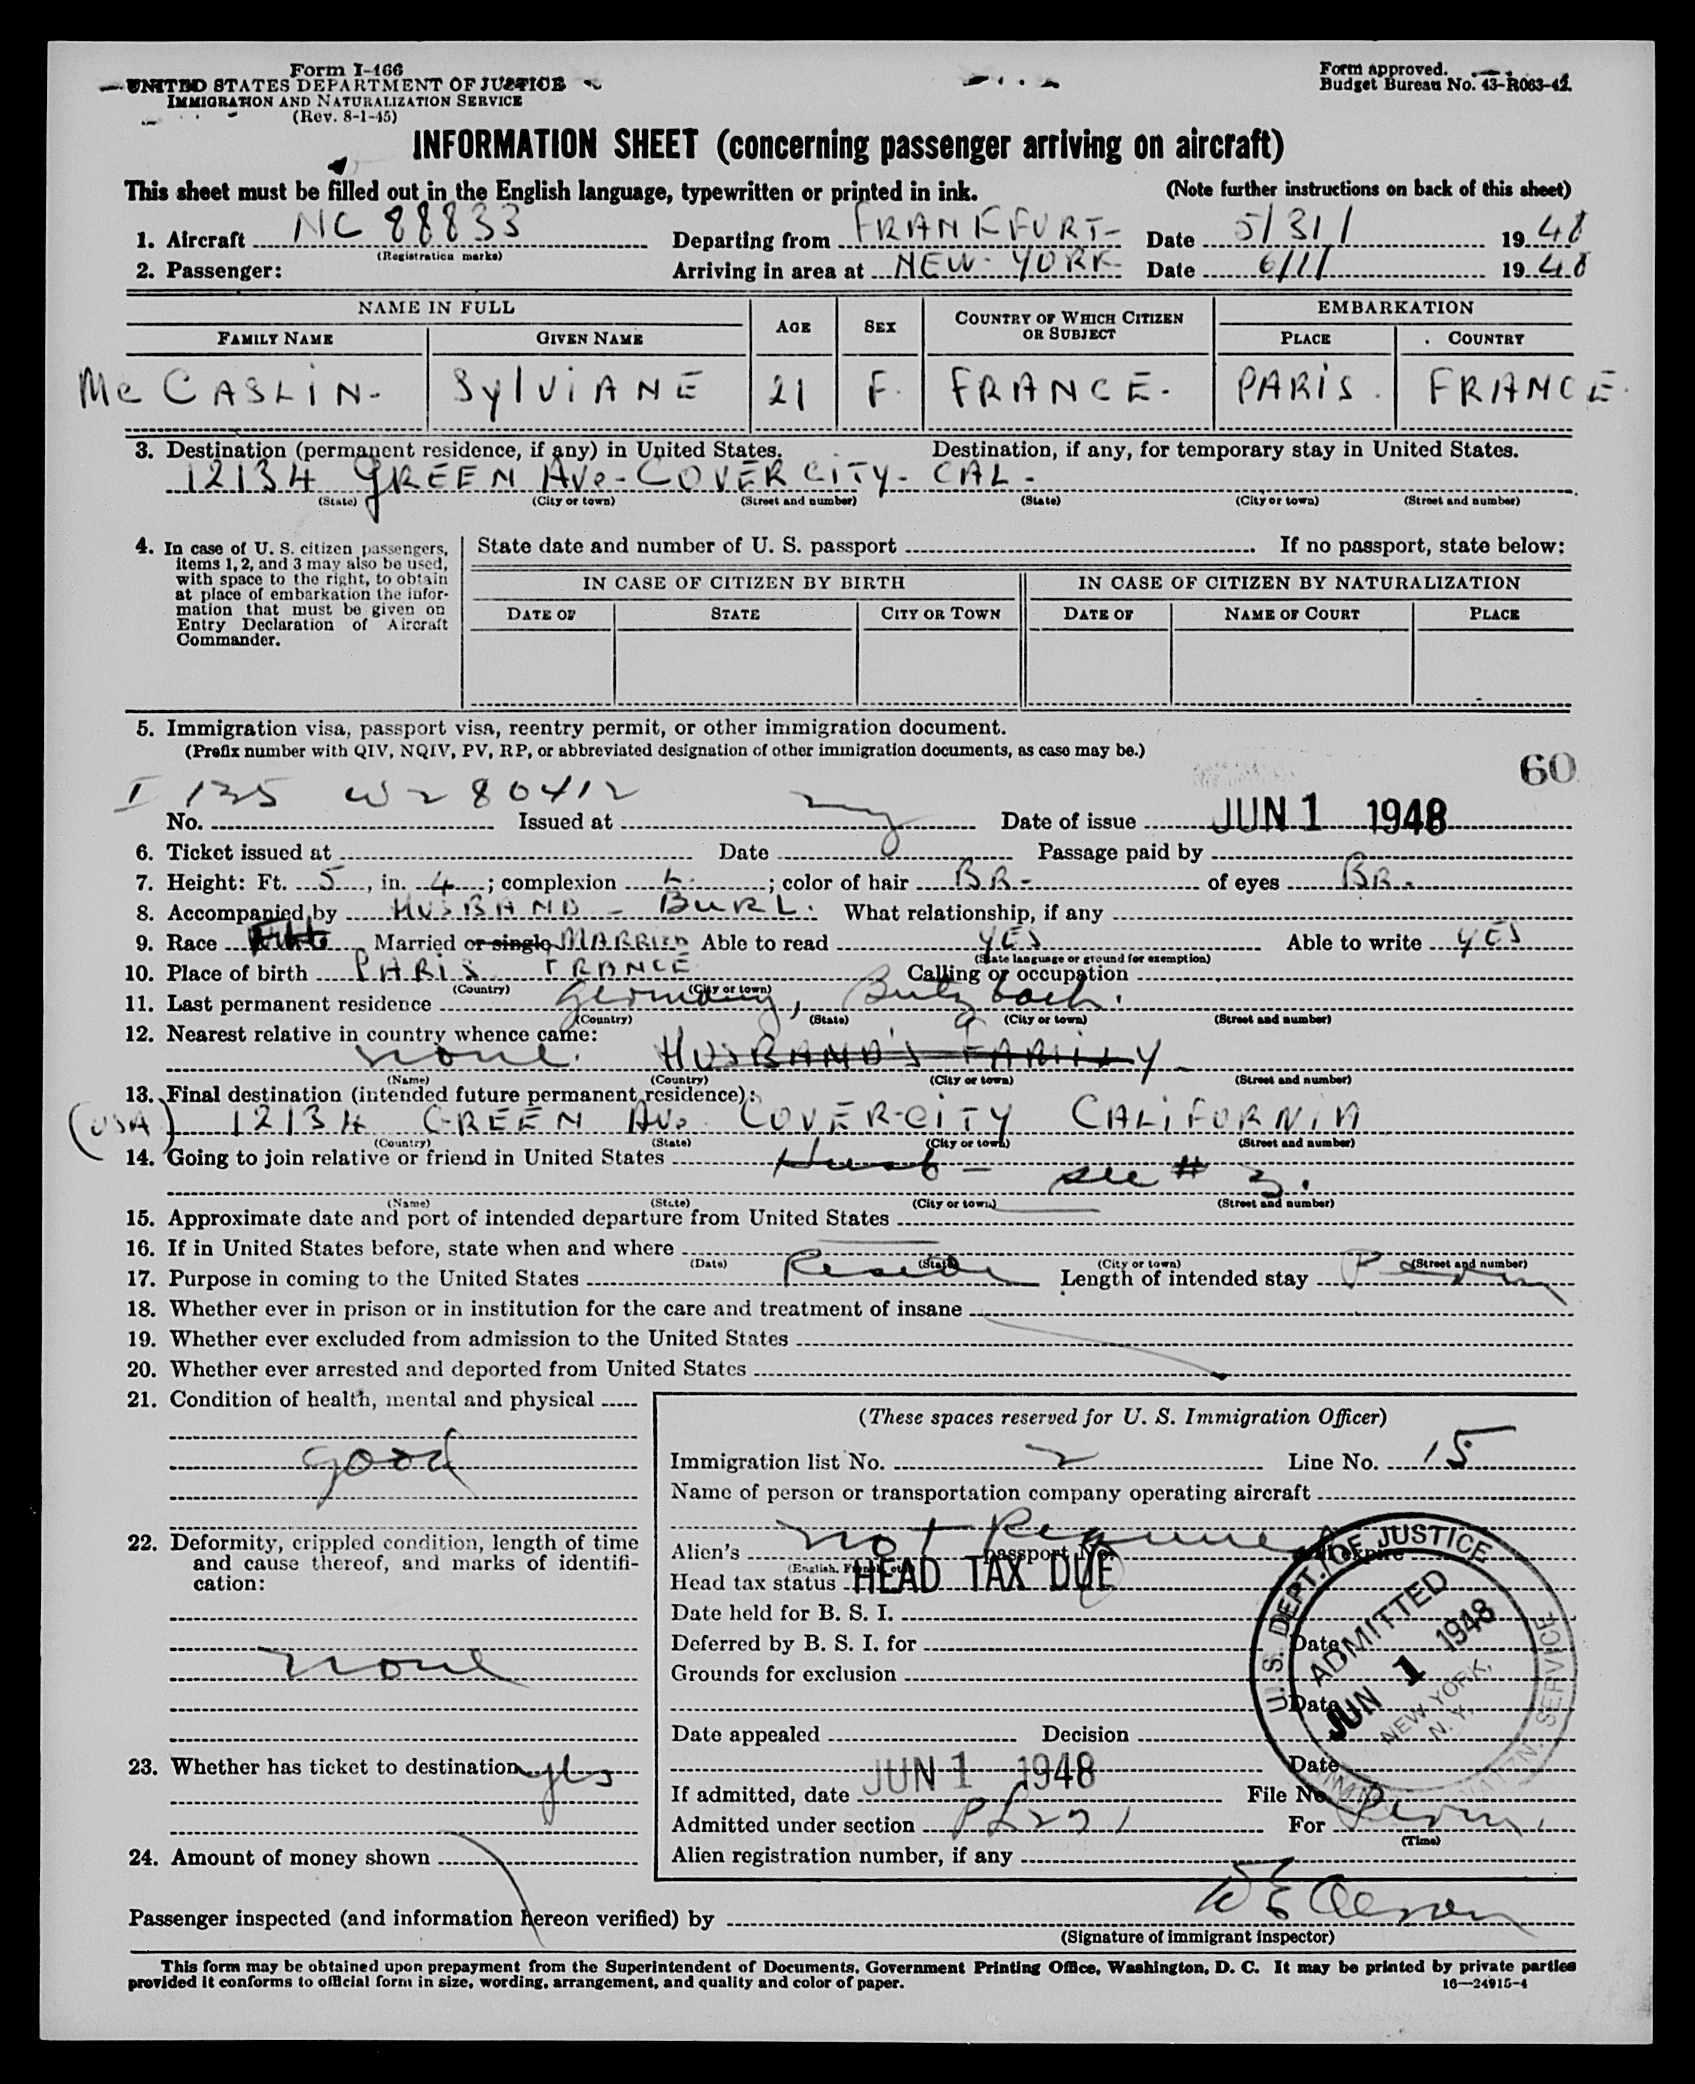 Form I-466
UNITED STATES DEPARTMENT OF JUSTICE
IMMIGRATION AND NATURALIZATION SERVICE
(Rev. 8-1-45)
Form approved.
Budget Bureau No. 43-R063-42.
INFORMATION SHEET (concerning passenger arriving on aircraft)
This sheet must be filled out in the English language, typewritten or printed in ink. (Note further instructions on back of this sheet)
1. Aircraft NC 88833 Departing from FRANKFURT- Date 5/31/ 1948
(Registration marks)
2. Passenger: Arriving in area at NEW-YORK Date 6/1/ 1948
NAME IN FULL AGE SEX COUNTRY OF WHICH CITIZEN OR SUBJECT EMBARKATION
FAMILY NAME GIVEN NAME PLACE COUNTRY
McCASLIN- SylViANE 21 F. FRANCE- PARiS. FRANCE.
3. Destination (permanent residence, if any) in United States. Destination, if any, for temporary stay in United States.
12134 GREEN AVe-COVER CiTY- CAL-
(State) (City or town) (Street and number) (State) (City or town) (Street and number)
4. In case of U. S. citizen passengers, items 1, 2, and 3 may also be used, with space to the right, to obtain at place of embarkation the information that must be given on Entry Declaration of Aircraft Commander.
State date and number of U. S. passport If no passport, state below:
IN CASE OF CITIZEN BY BIRTH IN CASE OF CITIZEN BY NATURALIZATION
DATE OF STATE CITY OR TOWN DATE OF NAME OF COURT PLACE
5. Immigration visa, passport visa, reentry permit, or other immigration document.
(Prefix number with QIV, NQIV, PV, RP, or abbreviated designation of other immigration documents, as case may be.)
60
I 135 W 280412
No. Issued at Date of issue JUN 1 1948
6. Ticket issued at Date Passage paid by
7. Height: Ft. 5, in. 4; complexion color of hair BR- of eyes BR.
8. Accompanied by HUSBAND - BURL. What relationship, if any
9. Race Married or single MARRIED Able to read YES Able to write YES
(State language or ground for exemption)
10. Place of birth PARIS FRANCE Calling or occupation
(Country) (City or town)
11. Last permanent residence Germany, Butzbach.
(Country) (State) (City or town) (Street and number)
12. Nearest relative in country whence came:
none. HUSBAND'S FAMILY-
(Name) (Country) (City or town) (Street and number)
13. Final destination (intended future permanent residence):
(USA) 12134 GREEN AVe COVER-CiTY CALiFORNiA
(Country) (State) (City or town) (Street and number)
14. Going to join relative or friend in United States Husb -
see # 3.
(Name) (State) (City or town) (Street and number)
15. Approximate date and port of intended departure from United States
16. If in United States before, state when and where
(Date) (State) (City or town) (Street and number)
17. Purpose in coming to the United States Reside Length of intended stay Perm
18. Whether ever in prison or in institution for the care and treatment of insane
19. Whether ever excluded from admission to the United States
20. Whether ever arrested and deported from United States
21. Condition of health, mental and physical
good
22. Deformity, crippled condition, length of time and cause thereof, and marks of identification:
none
23. Whether has ticket to destination yes
24. Amount of money shown
(These spaces reserved for U. S. Immigration Officer)
Immigration list No. 2 Line No. 15
Name of person or transportation company operating aircraft
not Required
Alien's passport No. expire
(English, French, etc.)
Head tax status HEAD TAX DUE
Date held for B. S. I.
Deferred by B. S. I. for Date
Grounds for exclusion
Date
Date appealed Decision
Date
If admitted, date JUN 1 1948 File No.
Admitted under section PL 271 For Perm.
(Time)
Alien registration number, if any
U. S. DEPT. OF JUSTICE
ADMITTED
JUN 1 1948
NEW YORK, N. Y.
IMMIGN. SERVICE
Passenger inspected (and information hereon verified) by
(Signature of immigrant inspector)
This form may be obtained upon prepayment from the Superintendent of Documents, Government Printing Office, Washington, D. C. It may be printed by private parties
provided it conforms to official form in size, wording, arrangement, and quality and color of paper. 16—24915-4